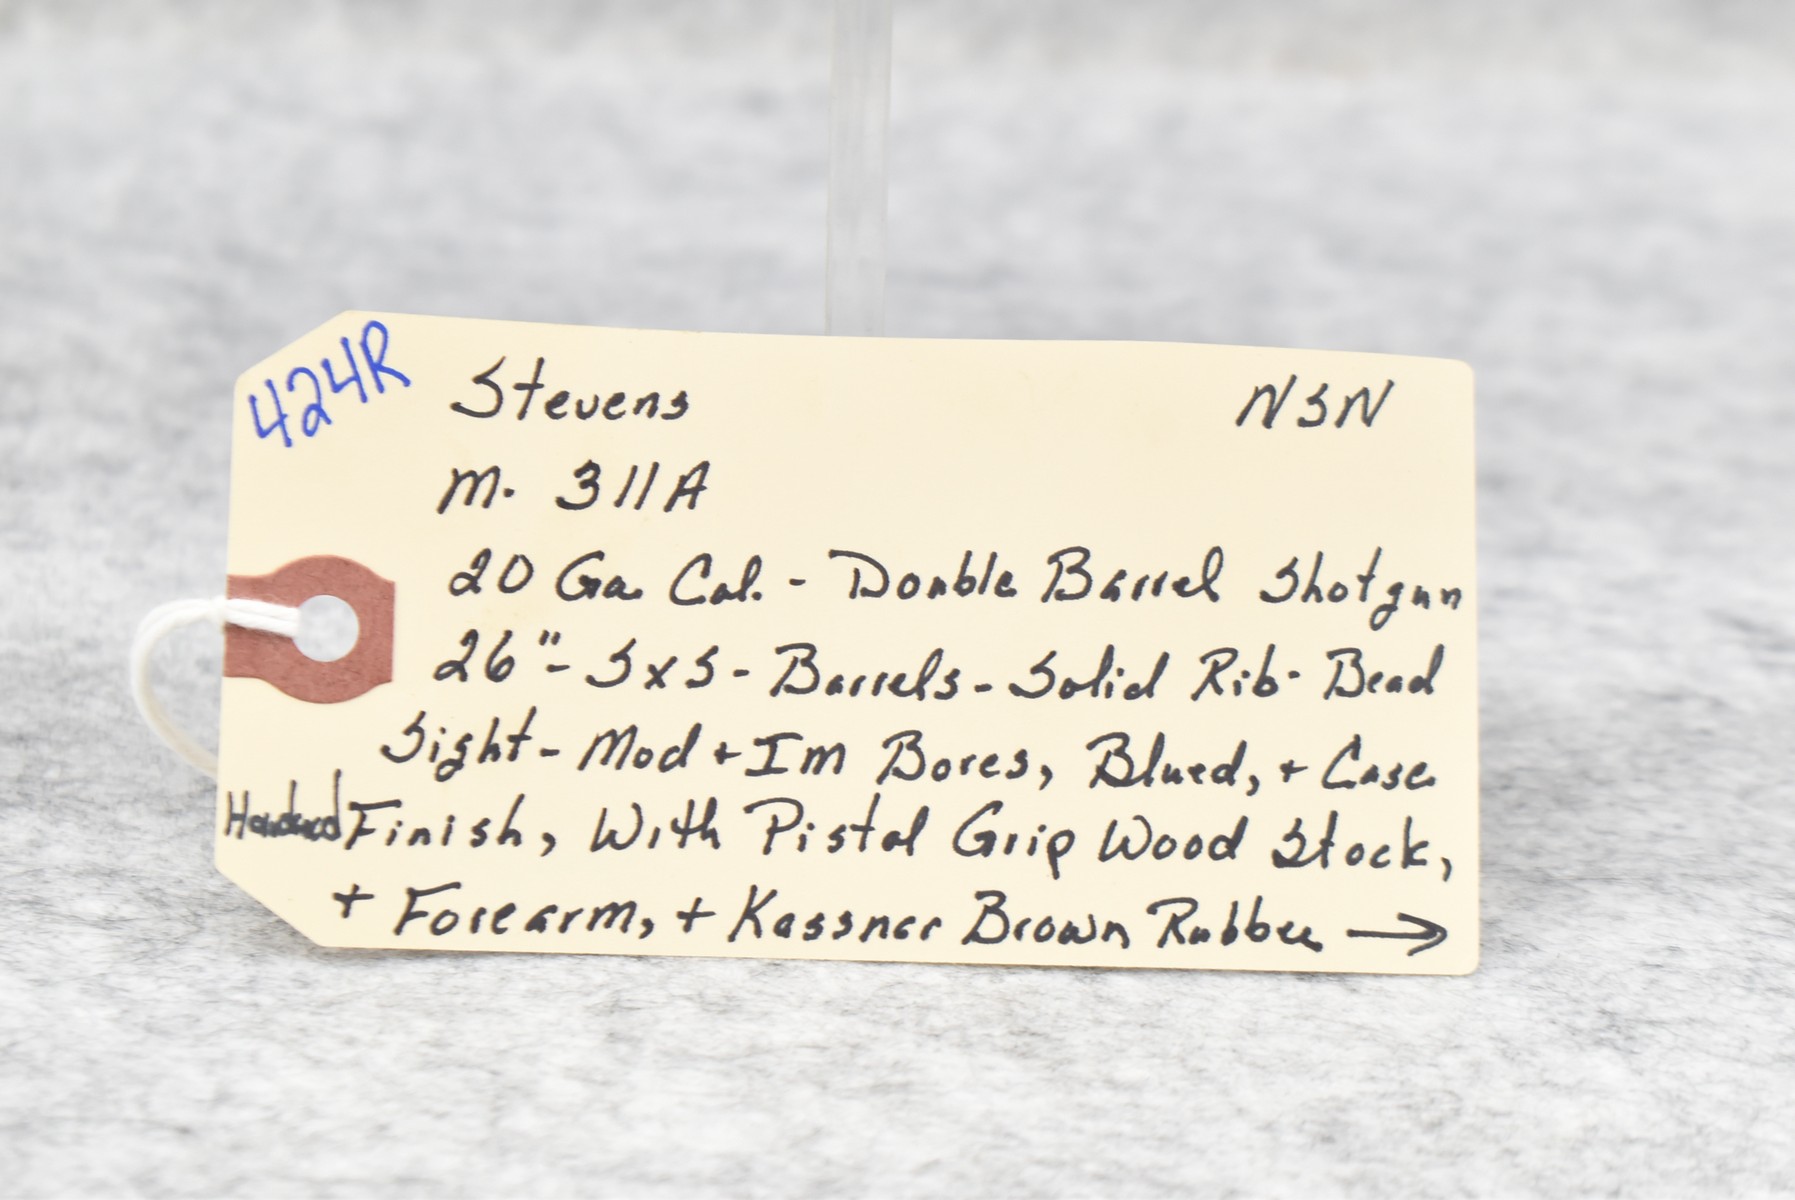 424R
Stevens NSN
M. 311A
20 Ga. Cal. - Double Barrel Shotgun
26" - SxS - Barrels - Solid Rib - Bead
Sight - Mod + Im Bores, Blued, + Case
Hardened Finish, With Pistol Grip Wood Stock,
+ Forearm, + Kassnar Brown Rubber →